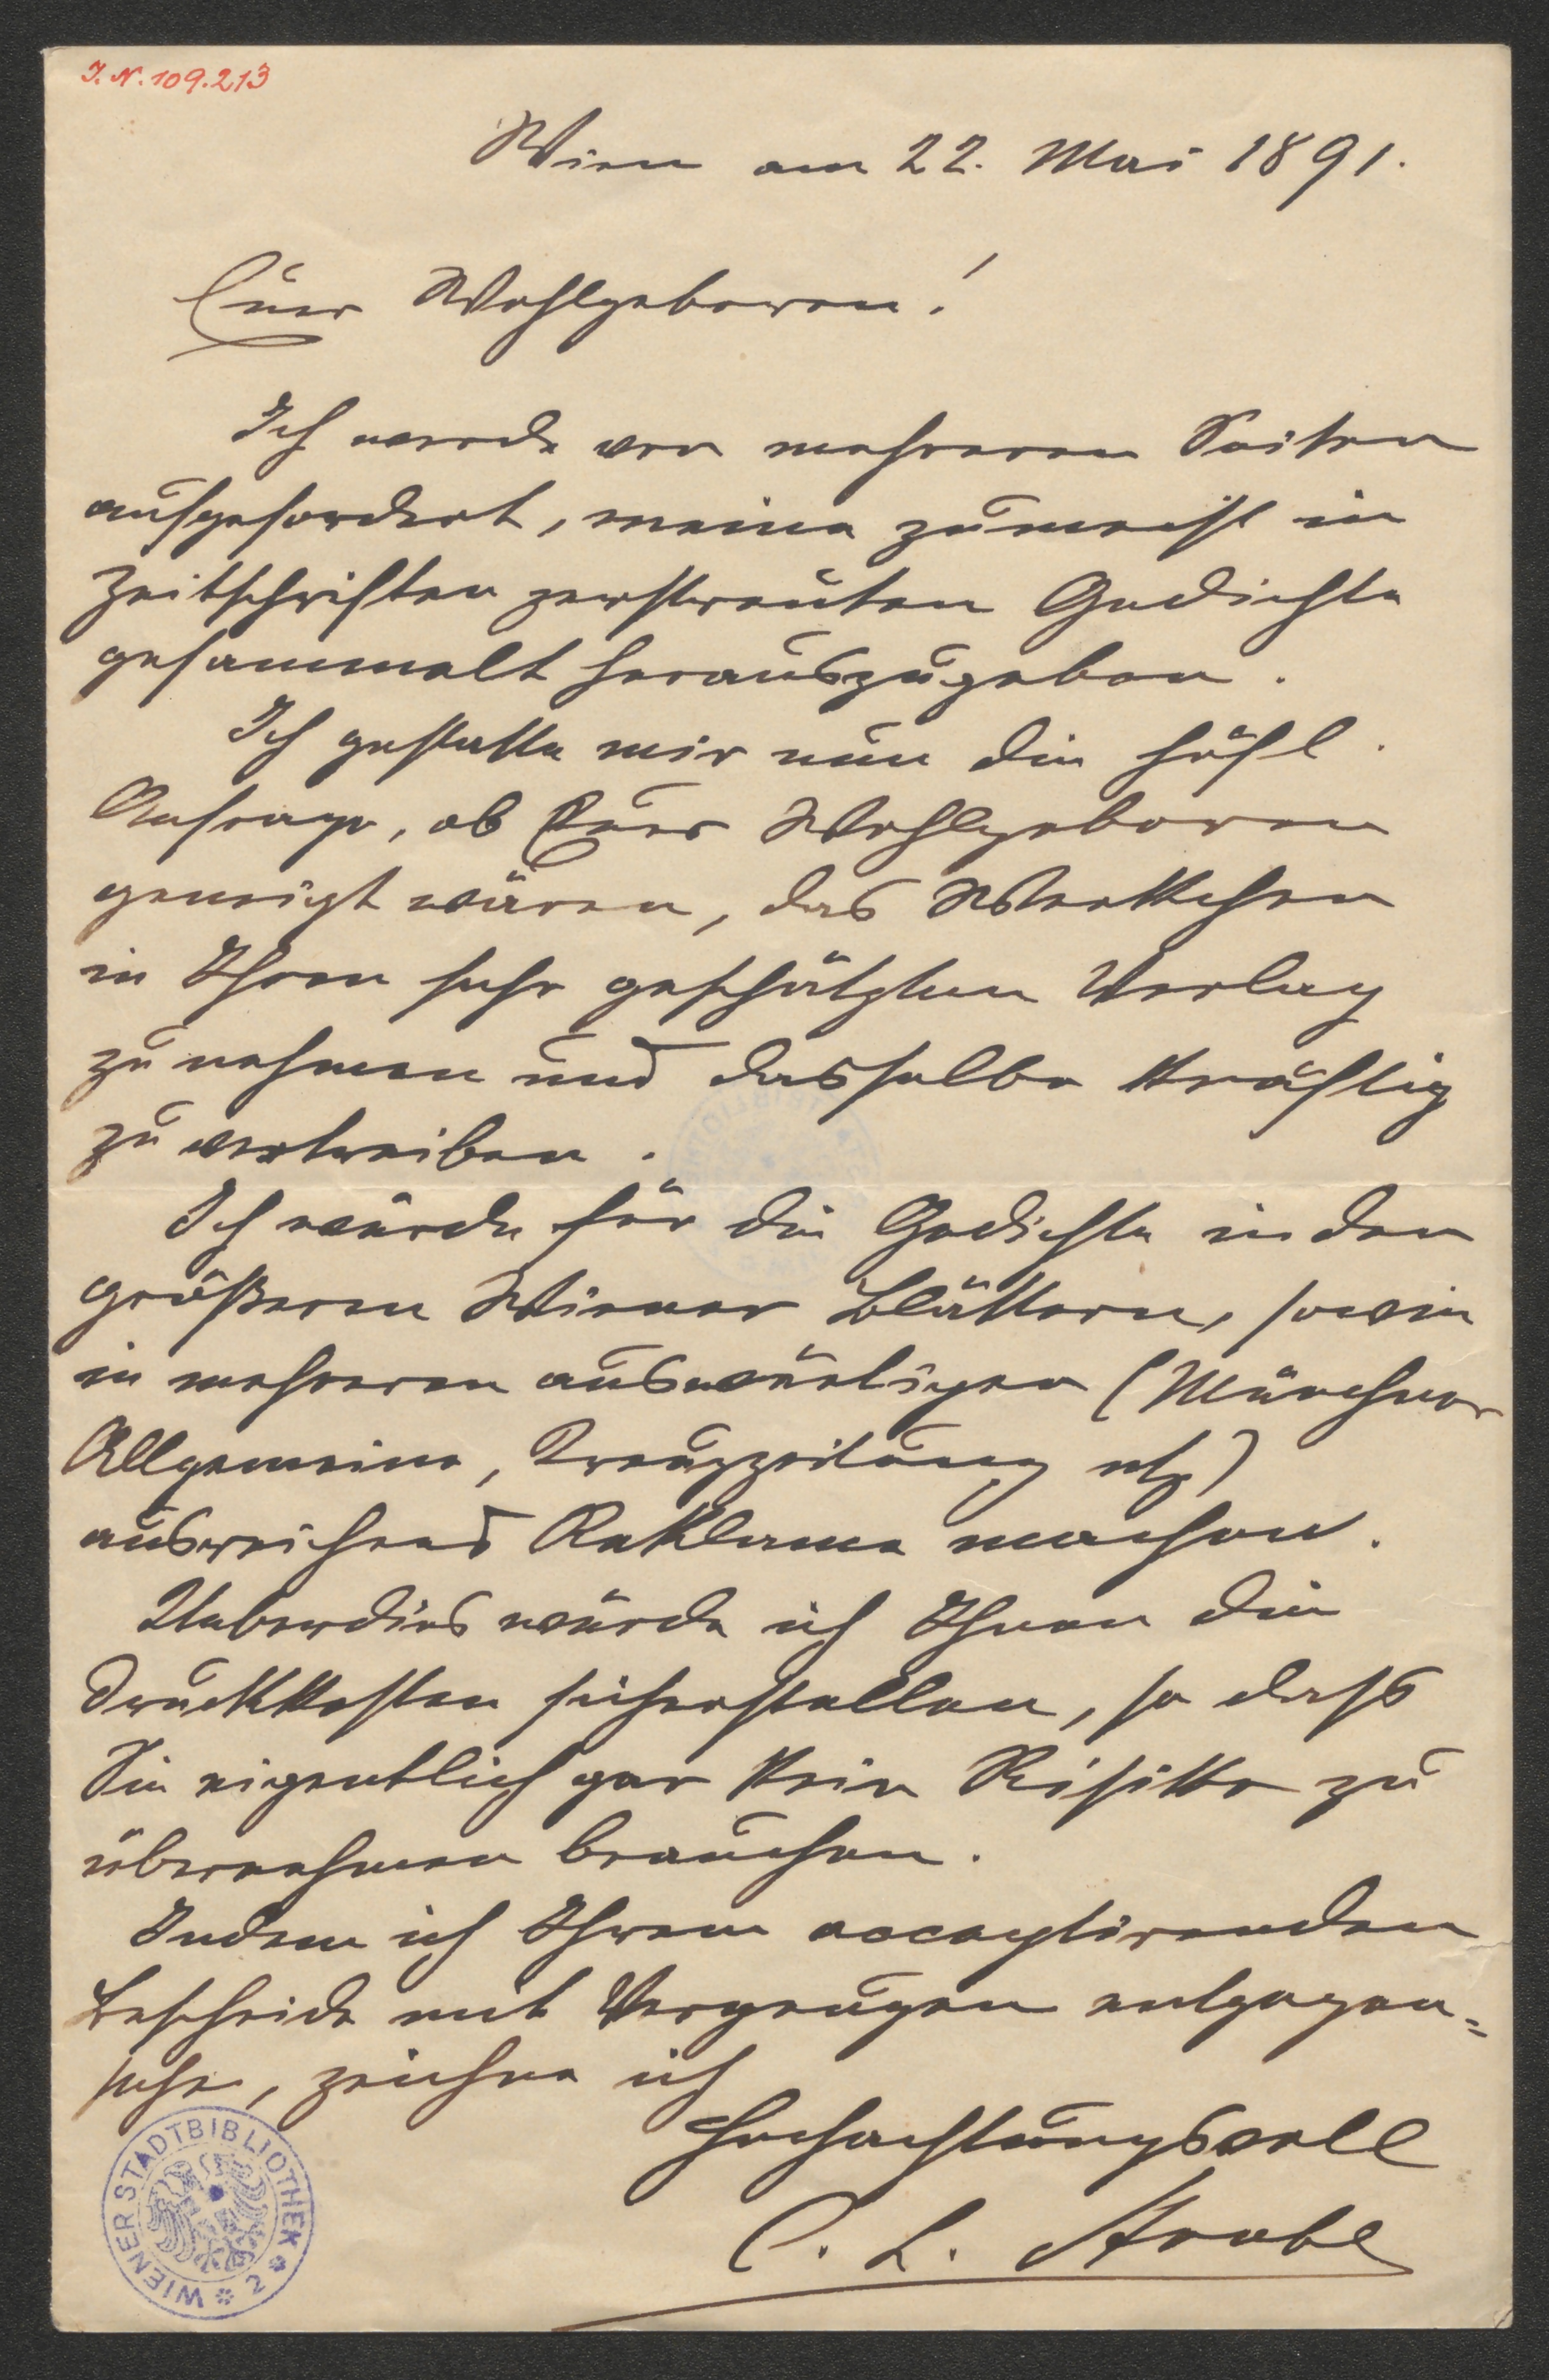 I. N. 109.213
Wien am 22. Mai 1891.
Euer Wohlgeboren!
Ich werde von mehreren Seiten
aufgefordert, meine zumeist in
Zeitschriften zerstreuten Gedichte
gesammelt herauszugeben.
Ich gestatte mir nun die höfl.
Anfrage, ob Euer Wohlgeboren
geneigt wären, das Werkchen
in Ihren sehr geschätzten Verlag
zu nehmen und dasselbe kräftig
zu vertreiben.
Ich würde für die Gedichte in den
größeren Wiener Blättern, sowie
in mehreren auswärtigen (Münchner
Allgemeine, Kreuzzeitung etz)
ausreichend Reklame machen.
Ueberdies würde ich Ihnen die
Druckkosten sicherstellen, so dass
Sie eigentlich gar kein Risiko zu
übernehmen brauchen.
Indem ich Ihrem acceptirenden
Bescheide mit Vergnügen entgegen=
sehe, zeichne ich
Hochachtungsvoll
C. L.
WIENER STADTBIBLIOTHEK * 2 *